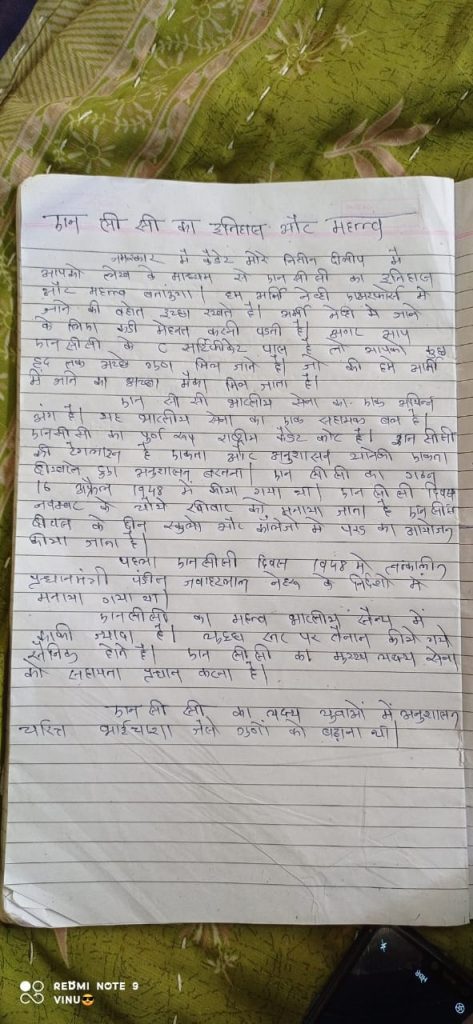 एन सी सी का इतिहास और महत्त्व
नमस्कार मै कैडेट मोरे नितीन दीलीप मै
आपको लेख के माध्यम से एन सी सी का इतिहास
और महत्त्व बताउंगा। हम आर्मी नेव्ही एअरफोर्स मे
जाने की बहोत इच्छा रखते है। आर्मी नेव्ही मे जाने
के लिए कडी मेहनत करनी पडती है। अगर आप
एन सी सी के C सर्टिफीकेट पास है तो आपको कुछ
हद तक अच्छे गुण मिल जाते है। जो की हमे आर्मी
में जाने का अच्छा मौका मिल जाता है।
एन सी सी भारतीय सेना का एक अभिन्न
अंग है। यह भारतीय सेना का एक सहायक बल है।
एनसीसी का पुर्ण रूप राष्ट्रीय कैडेट कोर है। एन सीसी
की टैगलाईन है एकता और अनुशासन यानिकी एकता
दीखाते हुए अनुशासन बरतना। एन सी सी का गठन
16 अप्रैल 1948 मे कीया गया था। एन सी सी दिवस
नवम्बर के चौथे रवीवार को मनाया जाता है एनसीसी
दीवस के दीन स्कुलो और कॉलेजो मे परेड का आयोजन
कीया जाता है।
पहला एनसीसी दिवस 1948 मे तत्कालीन
प्रधानमंत्री पंडीत जवाहरलाल नेहरू के निर्देशो में
मनाया गया था।
एनसीसी का महत्व भारतीय सैन्य में
काफी ज्यादा है। युद्ध स्तर पर तैनात कीये गये
सैनिक होते है। एन सी सी का मुख्य लक्ष्य सेना
को सहायता प्रधान करना है।
एन सी सी का लक्ष्य युवाओं में अनुशासन
चरित्र भाईचारा जेसे गुणों को बढाना था।
REDMI NOTE 9
VINU😎